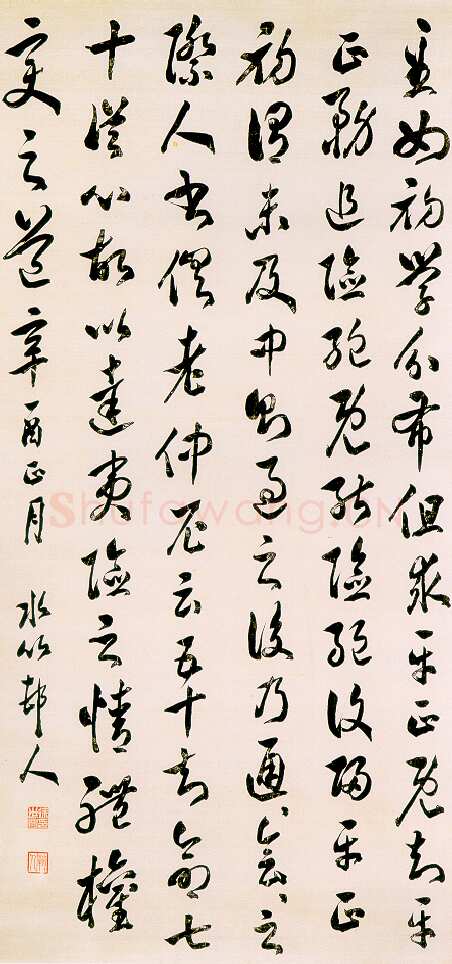 至如初學分布但求平正既知平
正務追險絕既能險絕復歸平正
初謂未及中則過之後乃通〻會〻之
際人書俱老仲尼云五十知命七
十從心故以達夷險之情體權
變之道辛酉正月 水竹邨人
Shufawang.CN